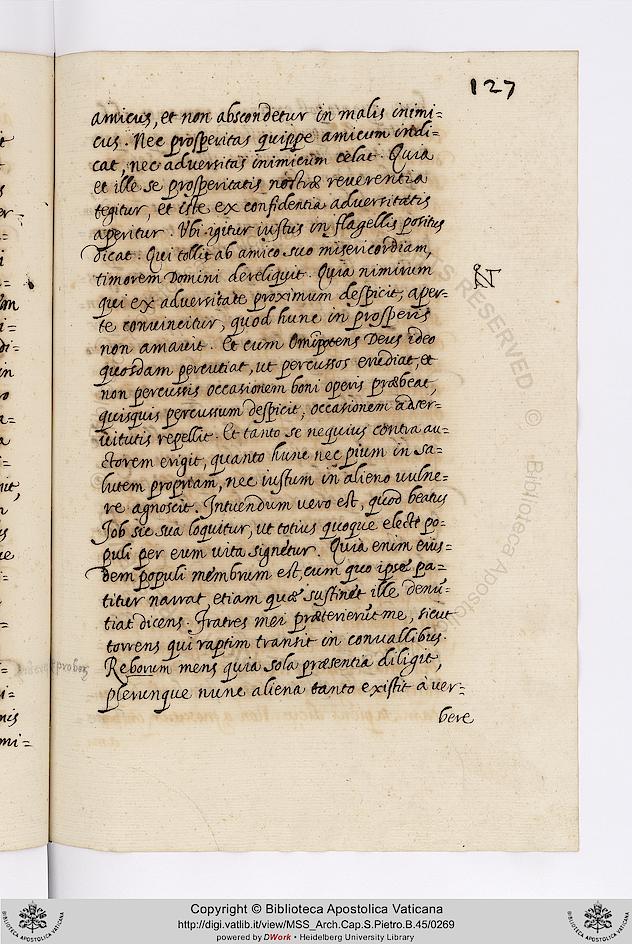 127
amicus, et non abscondetur in malis inimi=
cus. Nec prosperitas quippe amicum indi=
cat, nec adversitas inimicum celat. Quia
et ille se prosperitatis nostræ reverentia
tegitur, et iste ex confidentia adversitatis
aperitur. Vbi igitur iustus in flagellis positus
dicat. Qui tollit ab amico suo misericordiam,
timorem Domini dereliquit. Quia nimirum
qui ex adversitate proximum despicit, aper=
te convincitur, quod hunc in prosperis
non amavit. Et cum Omipotens Deus ideo
quosdam percutiat, ut percussos erudiat, et
non percussis occasionem boni operis præbeat,
quisquis percussum despicit, occasionem a se
virtutis repellit. Et tanto se nequius contra au=
ctorem erigit, quanto hunc nec pium in sa=
lutem propriam, nec iustum in alieno vulne=
re agnoscit. Intuendum vero est, quod beatus
Job sic sua loquitur, ut totius quoque electi po=
puli per eum vita signetur. Quia enim eius=
dem populi membrum est, cum quo ipse pa=
titur narrat, etiam quæ sustinet ille denū=
tiat dicens. Fratres mei præterierut me, sicut
torrens qui raptim transit in convallibus.
Reborum mens quia sola præsentia diligit,
plerunque nunc aliena tanto existit à ver=
bere
Copyright © Biblioteca Apostolica Vaticana
http://digi.vatlib.it/view/MSS_Arch.Cap.S.Pietro.B.45/0269
powered by DWork • Heidelberg University Library